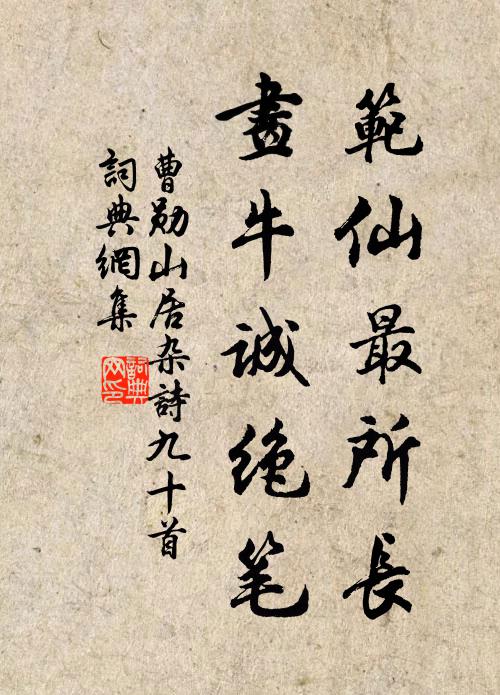 範仙最所長
畫牛誠绝笔
曹勛山居杂詩九十首
詞典網集
詞典
网印